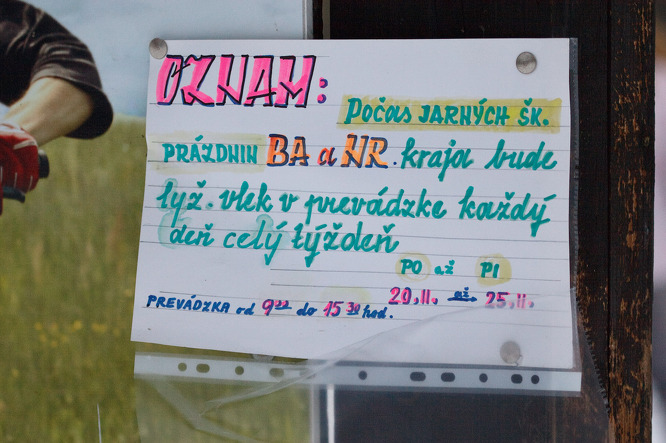 OZNAM:
POČAS JARNÝCH ŠK.
PRÁZDNIN BA a NR. kraja bude
lyž. vlek v prevádzke každý
deň celý týždeň
PO až PI
20.II. až 25.II.
PREVÁDZKA od 9⁰⁰ do 15³⁰ hod.